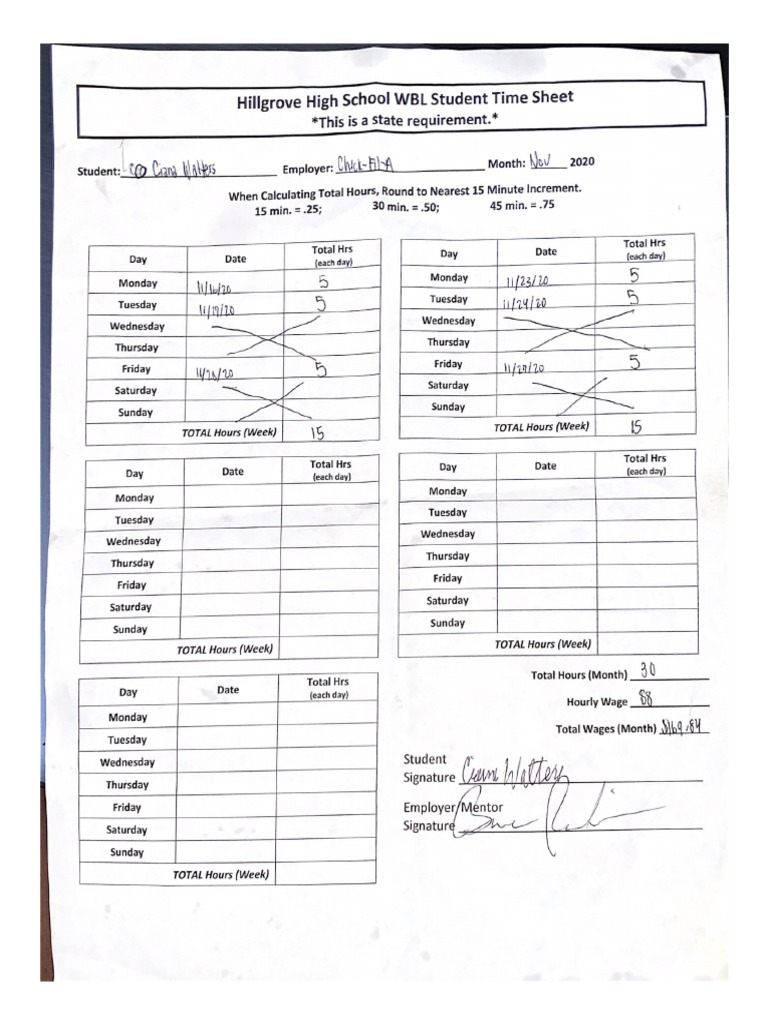 Hillgrove High School WBL Student Time Sheet
*This is a state requirement.*
Student: Ciana Watters Employer: Chick-Fil-A Month: Nov 2020
When Calculating Total Hours, Round to Nearest 15 Minute Increment.
15 min. = .25; 30 min. = .50; 45 min. = .75
Day Date Total Hrs (each day)
Monday 11/16/20 5
Tuesday 11/17/20 5
Wednesday
Thursday
Friday 11/20/20 5
Saturday
Sunday
TOTAL Hours (Week) 15
Day Date Total Hrs (each day)
Monday 11/23/20 5
Tuesday 11/24/20 5
Wednesday
Thursday
Friday 11/27/20 5
Saturday
Sunday
TOTAL Hours (Week) 15
Day Date Total Hrs (each day)
Monday
Tuesday
Wednesday
Thursday
Friday
Saturday
Sunday
TOTAL Hours (Week)
Day Date Total Hrs (each day)
Monday
Tuesday
Wednesday
Thursday
Friday
Saturday
Sunday
TOTAL Hours (Week)
Day Date Total Hrs (each day)
Monday
Tuesday
Wednesday
Thursday
Friday
Saturday
Sunday
TOTAL Hours (Week)
Total Hours (Month) 30
Hourly Wage
Total Wages (Month)
Student
Signature Ciana Watters
Employer/Mentor
Signature